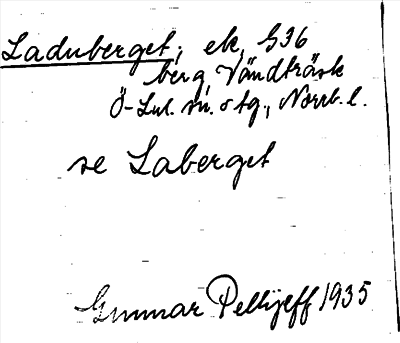 Laduberget, ek, 536
berg, Vändträsk
Ö-Lul. sn. o tg., Norrb. l.
se Laberget
Gunnar Pellijeff 1935